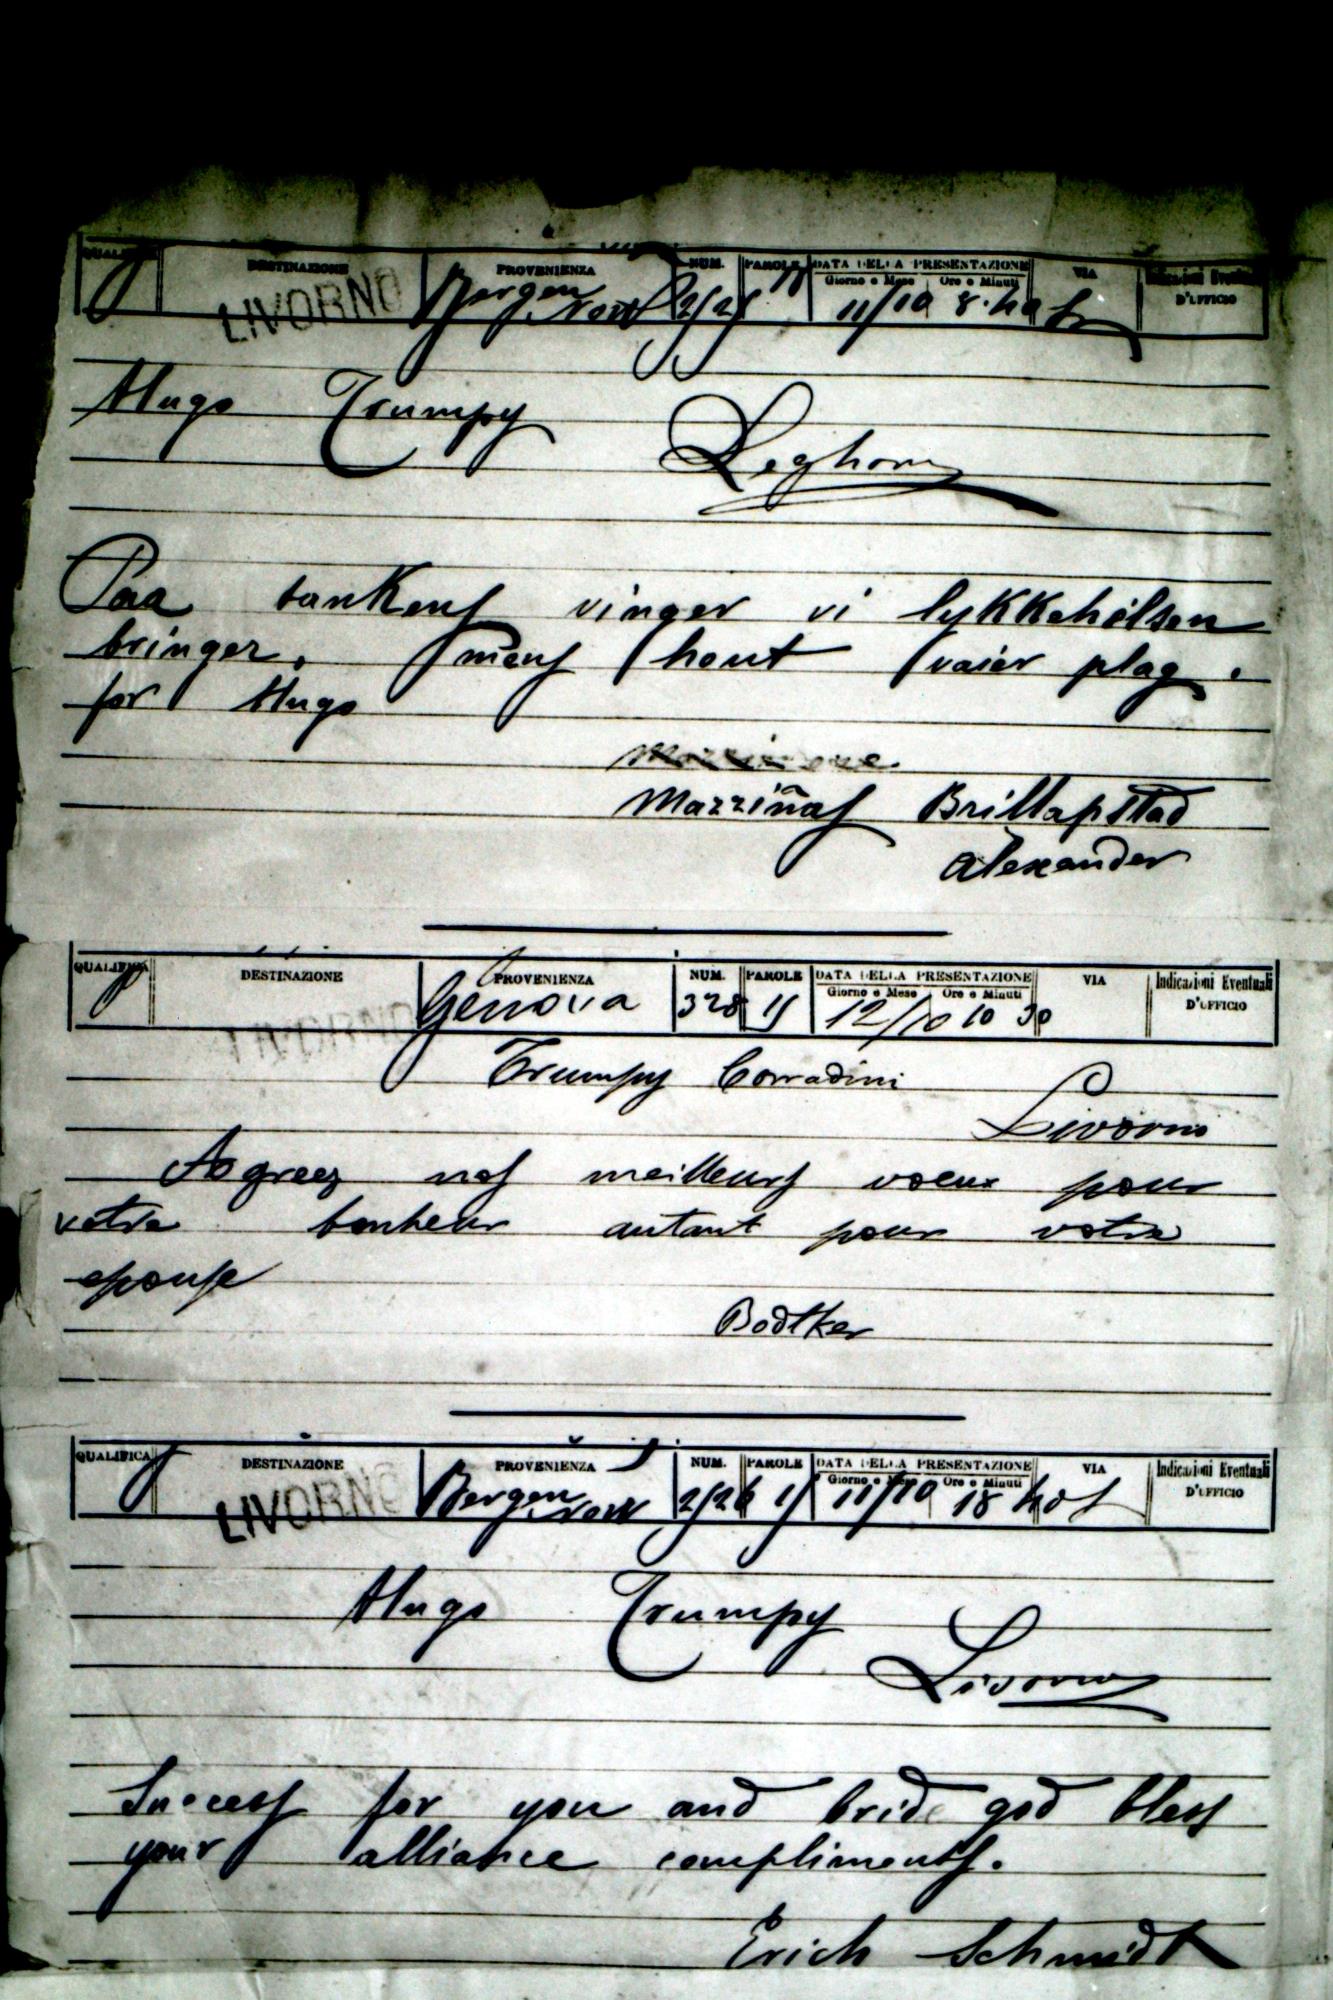 QUALIFICA DESTINAZIONE PROVENIENZA NUM. PAROLE DATA DELLA PRESENTAZIONE VIA Indicazioni Eventuali
Giorno e Mese Ore e Minuti D'UFFICIO
LIVORNO Bergen 11/10
Hugo Trumpy
Leghorn
Paa tankens vinger vi lykkehilsen
bringer. mens hout vaier plag.
for Hugo
Mazzinas Brillapstad
Alexander
QUALIFICA DESTINAZIONE PROVENIENZA NUM. PAROLE DATA DELLA PRESENTAZIONE VIA Indicazioni Eventuali
Giorno e Mese Ore e Minuti D'UFFICIO
LIVORNO Genova 328 15 12/10 10 30
Trumpy Corradini
Livorno
Agreez nos meilleurs voeux pour
votre bonheur autant pour votre
epouse
Bodtker
QUALIFICA DESTINAZIONE PROVENIENZA NUM. PAROLE DATA DELLA PRESENTAZIONE VIA Indicazioni Eventuali
Giorno e Mese Ore e Minuti D'UFFICIO
LIVORNO Bergen 11/10 18
Hugo Trumpy
Livorno
Success for you and bride god bless
your alliance compliments.
Erich Schmidt